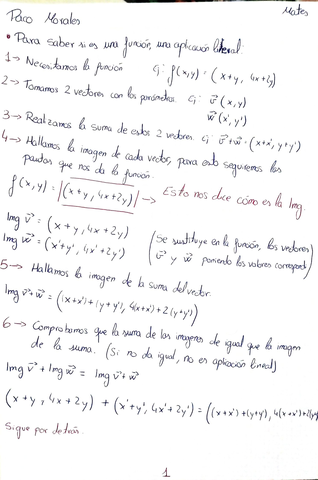 Paco Morales
Mates
• Para saber si es una función, una aplicación lineal:
1 → Necesitamos la función Ej: f(x,y) = (x+y, 4x+2y)
2 → Tomamos 2 vectores con los parámetros. Ej v⃗ (x,y)
w⃗ (x',y')
3 → Realizamos la suma de estos 2 vectores. Ej v⃗+w⃗ = (x+x', y+y')
4 → Hallamos la imagen de cada vector, para esto seguiremos las
pautas que nos da la función.
f(x,y) = (x+y, 4x+2y) → Esto nos dice cómo es la Img.
Img v⃗ = (x+y, 4x+2y)
Img w⃗ = (x'+y', 4x'+2y')
(Se sustituye en la función, los vectores
v⃗ y w⃗ poniendo los valores correspond)
5 → Hallamos la imagen de la suma del vector.
Img v⃗+w⃗ = ((x+x')+(y+y'), 4(x+x')+2(y+y'))
6 → Comprobamos que la suma de las imagenes de igual que la imagen
de la suma. (Si no da igual, no es aplicación lineal)
Img v⃗ + Img w⃗ = Img v⃗+w⃗
(x+y, 4x+2y) + (x'+y', 4x'+2y') = ((x+x')+(y+y'), 4(x+x')+2(y+y'
Sigue por detrás.
1